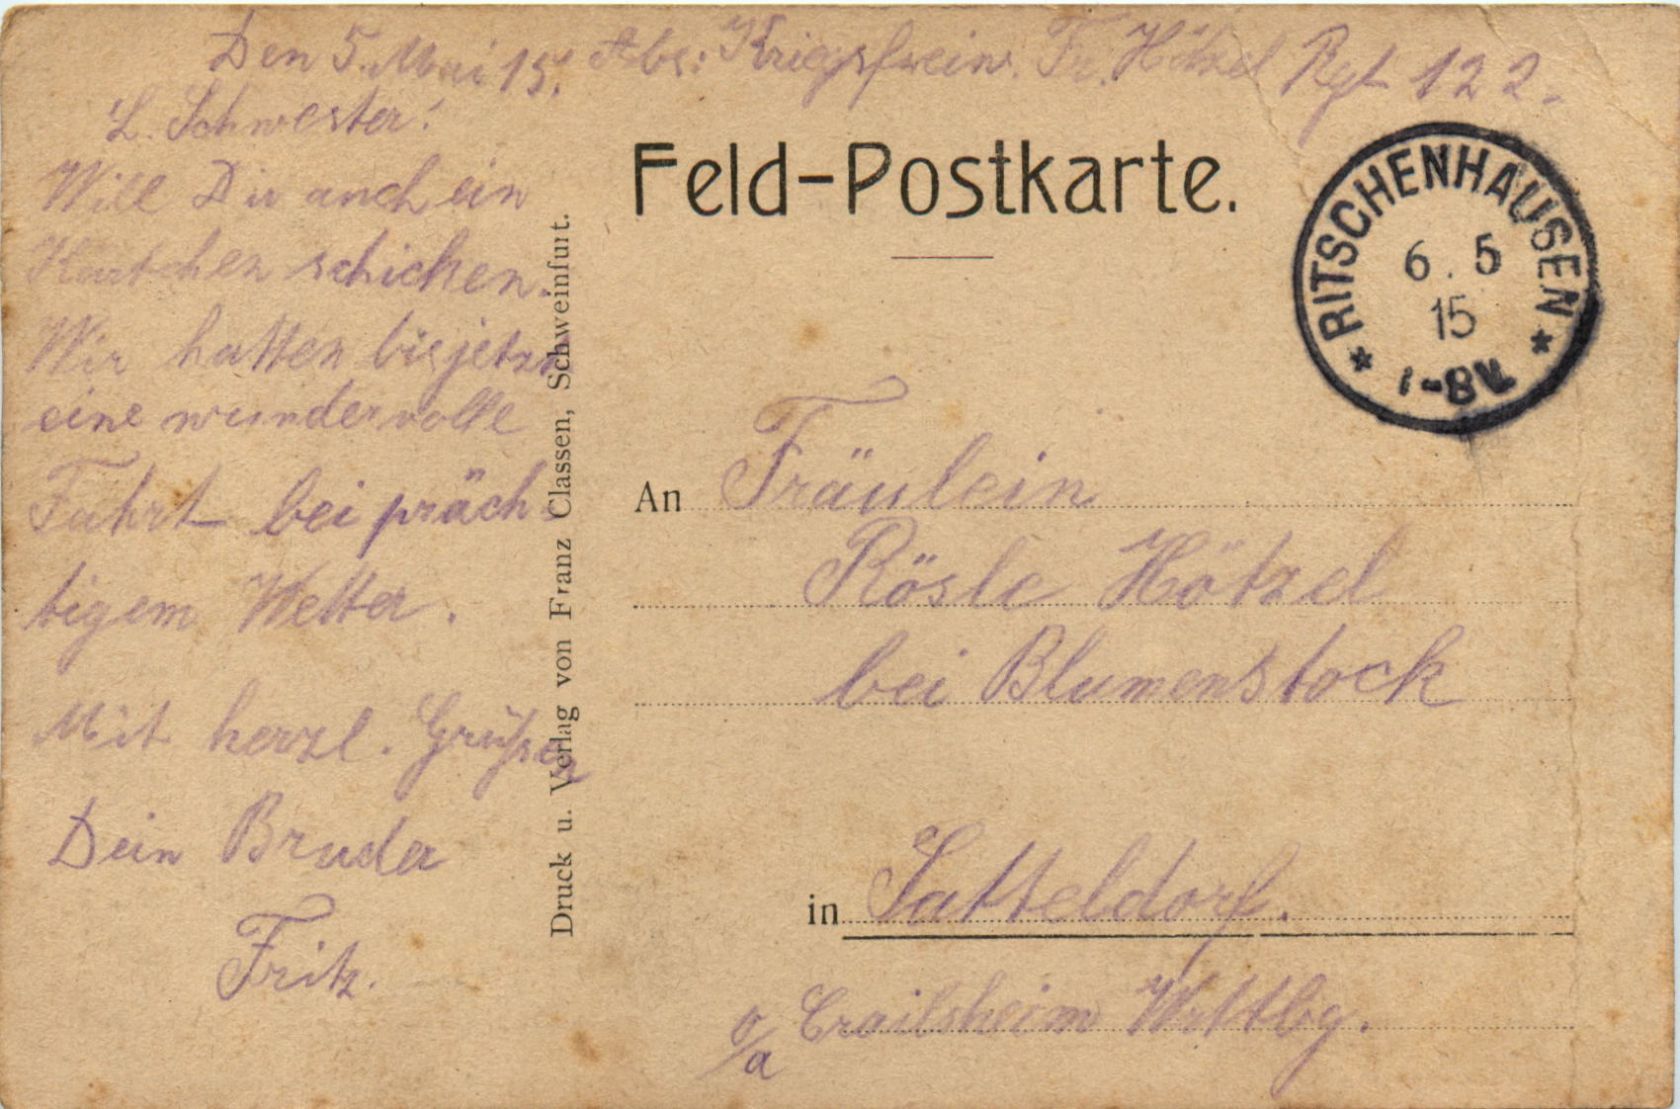 Den 5. Mai 15. Abs: Kriegsfreiw. Fr. Hötzel Rgt 122.
L. Schwester!
Will Dir auch ein
Kärtchen schicken.
Wir hatten bis jetzt
eine wundervolle
Fahrt bei präch-
tigem Wetter.
Mit herzl. Grüßen
Dein Bruder
Fritz.
Druck u. Verlag von Franz Classen, Schweinfurt.
Feld-Postkarte.
RITSCHENHAUSEN
6. 5
15
1-8V.
An Fräulein
Rösle Hötzel
bei Blumenstock
in Satteldorf.
o/a Crailsheim Wrttbg.